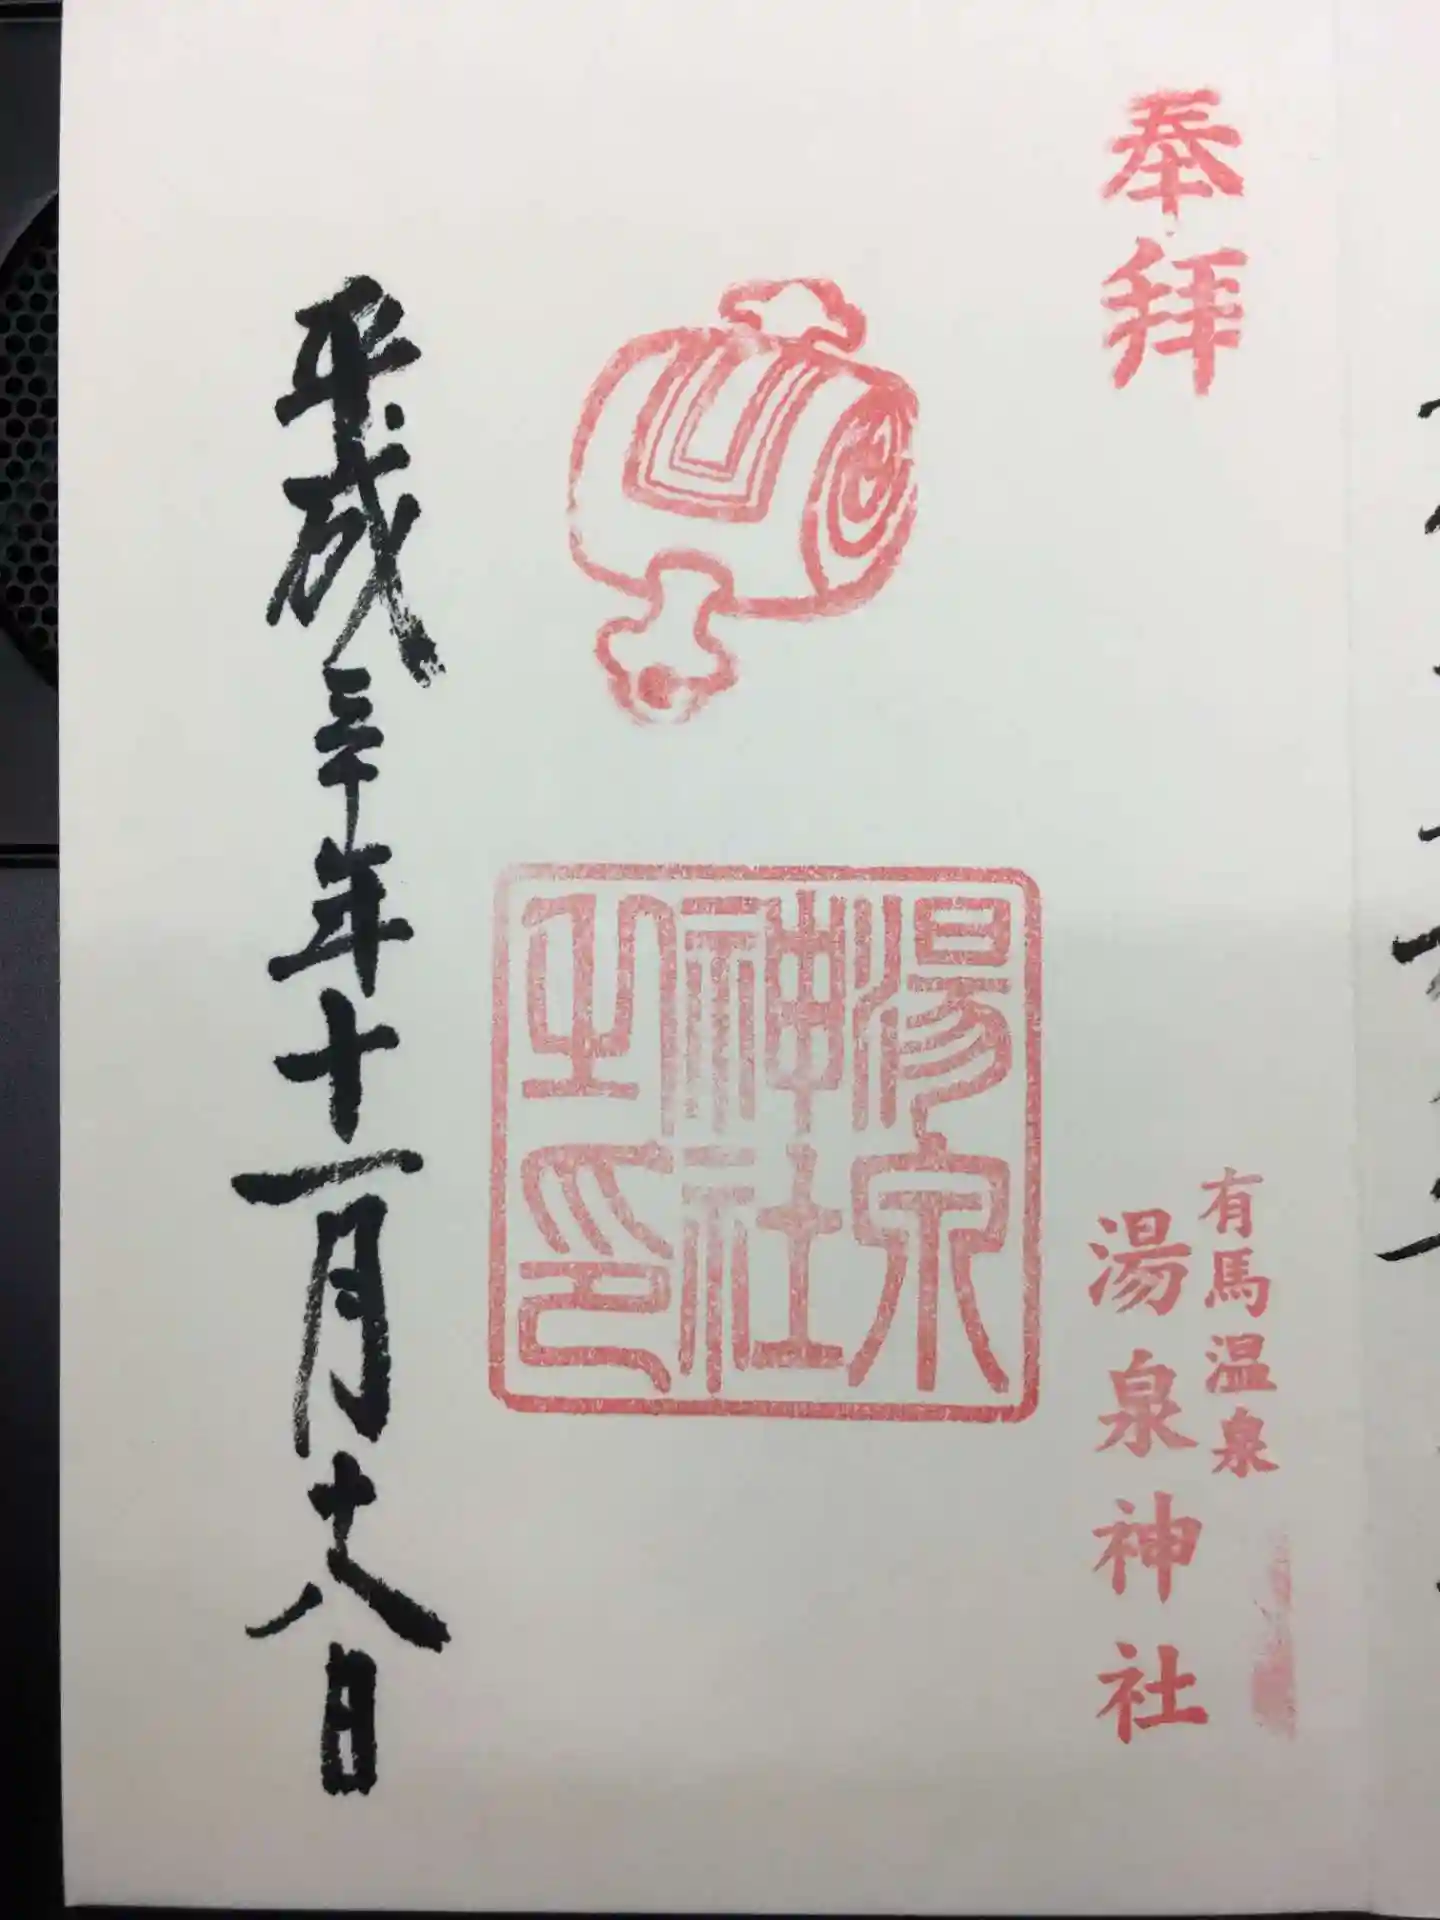 奉拝
有馬温泉
湯泉神社
湯泉
神社
之印
平成三十年十一月十八日